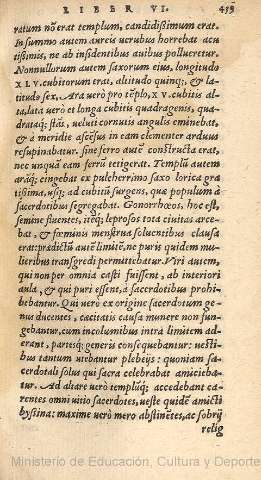 LIBER VI. 459
ratum nõ erat templum, candidißimum erat.
In summo autem aureis uerubus horrebat acu
tißimis, ne ab insidentibus auibus pollueretur.
Nonnullorum autem saxorum eius, longitudo
XLV. cubitorum erat, altitudo quinq;, & la
titudo sex. Ara verò pro tẽplo, XV. cubitis al
ta, lata verò et longa cubitis quadragenis, qua-
drataq; stãs, ueluti cornutis angulis eminebat,
& à meridie ascẽsus in eam clementer arduus
resupinabatur. sine ferro autẽ constructa erat,
nec unquã eam ferrũ tetigerat. Templũ autem
arãq; cingebat ex pulcherrimo saxo lorica gra
tißima, usq; ad cubitũ surgens, quæ populum à
sacerdotibus segregabat. Gonorrhœos, hoc est,
semine fluentes, itẽq; leprosos tota ciuitas arce-
bat, & fœminis menstrua soluentibus clausa
erat: prædictũ autẽ limitẽ, ne puris quidem mu-
lieribus transgredi permittebatur. Viri autem,
qui non per omnia casti fuissent, ab interiori
aula, & qui puri essent, à sacerdotibus prohi-
bebantur. Qui uerò ex origine sacerdotum ge-
nus ducentes, cæcitatis causa munere non fun-
gebantur, cum incolumibus intra limitem ad-
erant, partesq; generis consequebantur: uesti-
bus tantum utebantur plebeijs: quoniam sa-
cerdotali solus qui sacra celebrabat amicieba-
tur. Ad altare uerò templũq; accedebant ca-
rentes omni uitio sacerdotes, ueste quidẽ amicti
byssina: maxime verò mero abstinẽtes, ac sobrij
relig
Ministerio de Educación, Cultura y Deporte